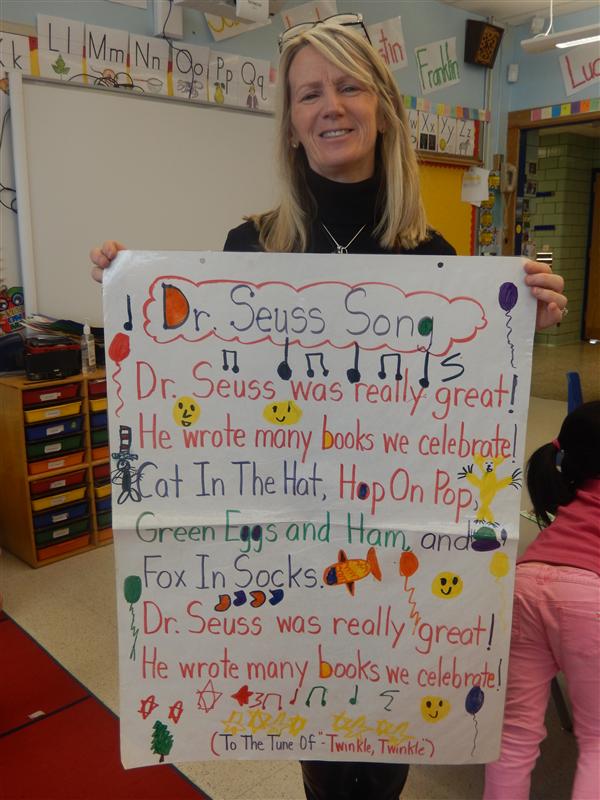 Kk Ll Mm Nn Oo Pp Qq
Franklin
Xx Yy Zz
Dr. Seuss Song
Dr. Seuss was really great!
He wrote many books we celebrate!
Cat In The Hat, Hop On Pop,
Green Eggs and Ham, and
Fox In Socks.
Dr. Seuss was really great!
He wrote many books we celebrate!
(To The Tune Of "Twinkle, Twinkle")